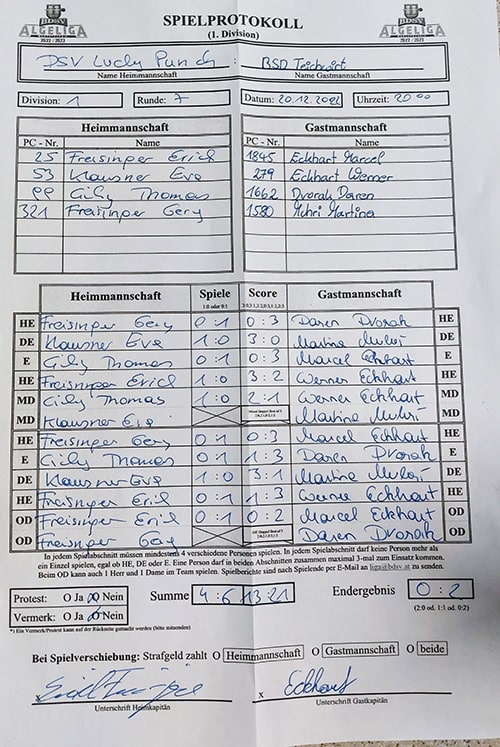 BDSV
ALGELIGA
2022 / 2023
SPIELPROTOKOLL
(1. Division)
BDSV
ALGELIGA
2022 / 2023
DSV Lucky Punch : BSD
Name Heimmannschaft Name Gastmannschaft
Division: 1 Runde: 7 Datum: 20.12.2022 Uhrzeit: 20 00
Heimmannschaft Gastmannschaft
PC - Nr. Name PC - Nr. Name
25 Freisinger Erich 1845 Eckhart Marcel
53 Klausner Eve 279 Eckhart Werner
99 Cily Thomas 1662 Dvorak Daren
321 Freisinger Gery 1580 Martina
Heimmannschaft Spiele Score Gastmannschaft
1:0 oder 0:1
HE Freisinger Gery 0:1 0:3 Daren Dvorak HE
DE Klausner Eve 1:0 3:0 Martina DE
E Cily Thomas 0:1 0:3 Marcel Eckhart E
HE Freisinger Erich 1:0 3:2 Werner Eckhart HE
MD Cily Thomas 1:0 2:1 Werner Eckhart MD
MD Klausner Eve Martina MD
HE Freisinger Gery 0:1 0:3 Marcel Eckhart HE
E Cily Thomas 0:1 1:3 Daren Dvorak E
DE Klausner Eve 1:0 3:1 Martina DE
HE Freisinger Erich 0:1 1:3 Werner Eckhart HE
OD Freisinger Erich 0:1 0:2 Marcel Eckhart OD
OD Freisinger Gery Daren Dvorak OD
In jedem Spielabschnitt müssen mindestens 4 verschiedene Personen spielen. In jedem Spielabschnitt darf keine Person mehr als
ein Einzel spielen, egal ob HE, DE oder E. Eine Person darf in beiden Abschnitten zusammen maximal 3-mal zum Einsatz kommen.
Beim OD kann auch 1 Herr und 1 Dame im Team spielen. Spielberichte sind nach Spielende per E-Mail an liga@bdsv.at zu senden.
Protest: O Ja O Nein Summe 4:6 13:21 Endergebnis 0:2
Vermerk: O Ja O Nein (2:0 od. 1:1 od. 0:2)
*) Ein Vermerk/Protest kann auf der Rückseite gemacht werden (bitte mitsenden)
Bei Spielverschiebung: Strafgeld zahlt O Heimmannschaft O Gastmannschaft O beide
x x Eckhart
Unterschrift Heimkapitän Unterschrift Gastkapitän